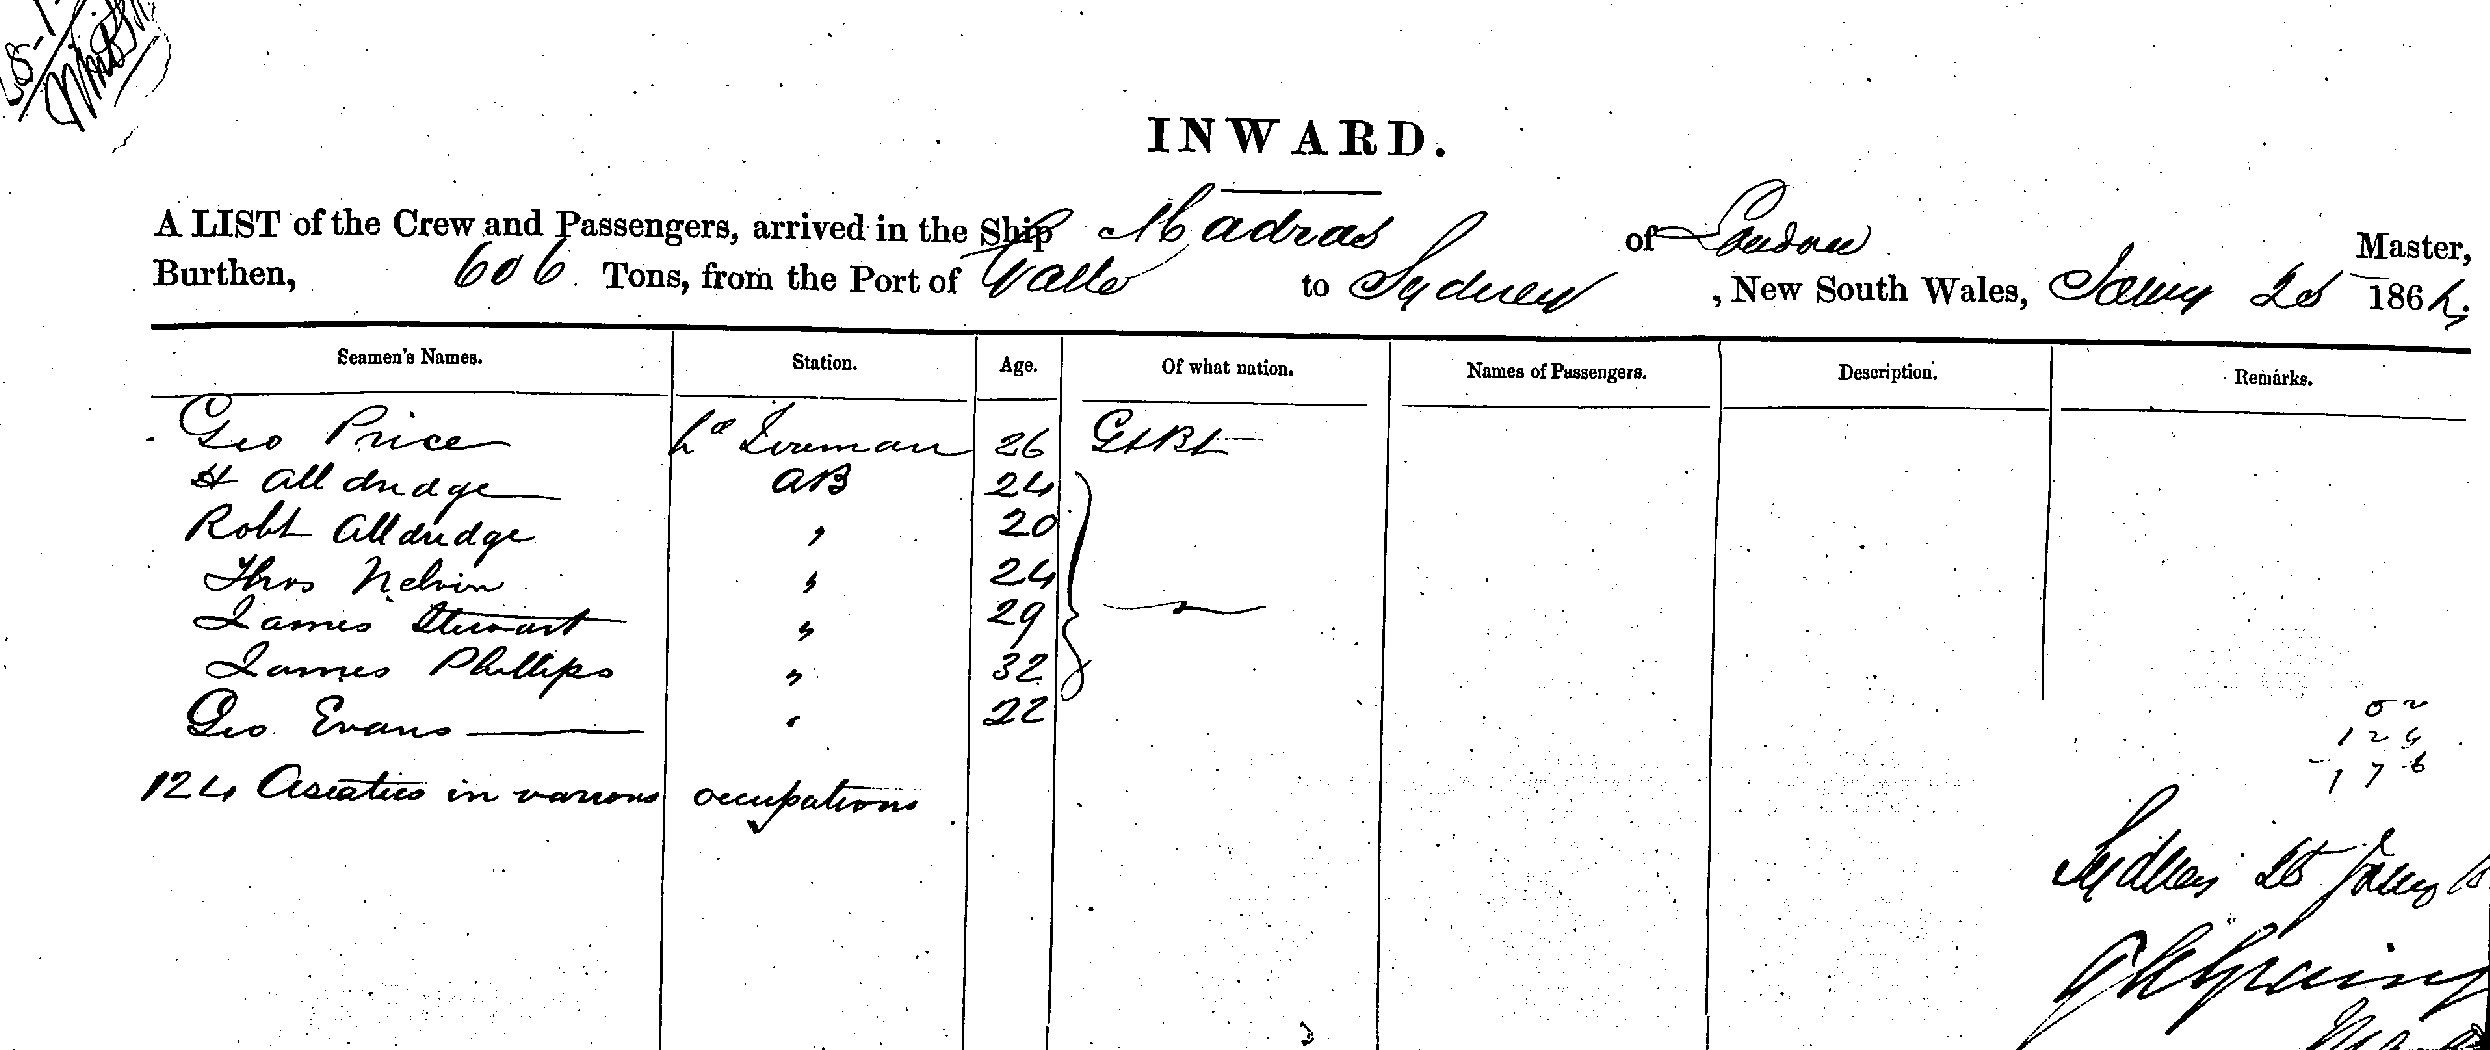 INWARD.
A LIST of the Crew and Passengers, arrived in the Ship Madras of London Master,
Burthen, 606 Tons, from the Port of Galle to Sydney, New South Wales, 186
Seamen's Names. Station. Age. Of what nation. Names of Passengers. Description. Remarks.
Geo Price 26 Gt Bt
H Alldridge AB 24
Robt Alldridge " 20
Thos Nelvin " 24
James Stewart " 29
James Phillips " 32
Geo Evans " 22
52
124
176
124 Asiatics in various occupations
Sydney